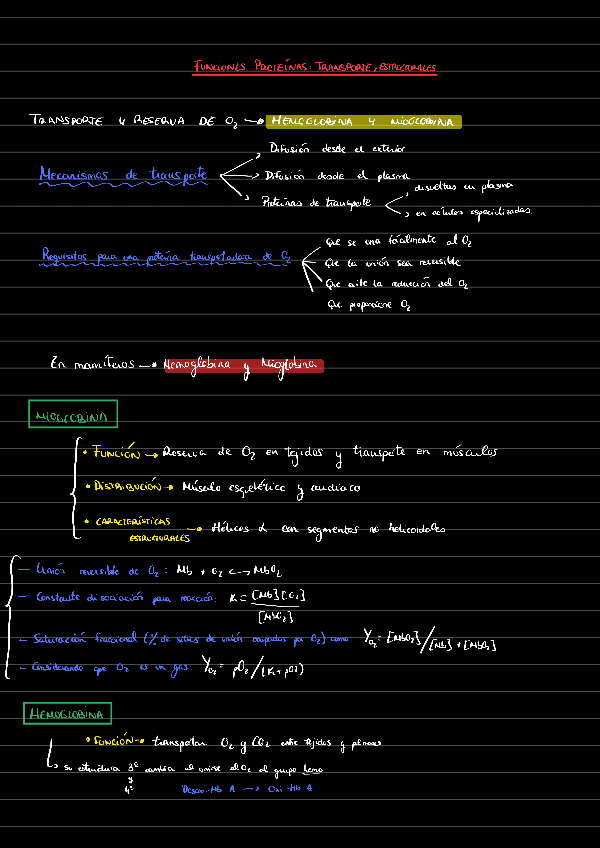 FUNCIONES PROTEÍNAS: TRANSPORTE, ESTRUCTURALES
TRANSPORTE Y RESERVA DE O₂ → HEMOGLOBINA Y MIOGLOBINA
Mecanismos de transporte
Difusión desde el exterior
Difusión desde el plasma
Proteínas de transporte
disueltas en plasma
en células especializadas
Requisitos para una proteína transportadora de O₂
Que se una fácilmente al O₂
Que la unión sea reversible
Que evite la reducción del O₂
Que proporcione O₂
En mamíferos → Hemoglobina y Mioglobina
MIOGLOBINA
• FUNCIÓN → Reserva de O₂ en tejidos y transporte en músculos
• DISTRIBUCIÓN → Músculo esquelético y cardiaco
• CARACTERÍSTICAS ESTRUCTURALES → Hélices α con segmentos no helicoidales
— Unión reversible de O₂: Mb + O₂ <—> MbO₂
— Constante disociación para reacción: K = [Mb][O₂] / [MbO₂]
— Saturación fraccional (% de sitios de unión ocupados por O₂) como Y_O₂ = [MbO₂] / [Mb] + [MbO₂]
— Considerando que O₂ es un gas: Y_O₂ = pO₂ / (K + pO₂)
HEMOGLOBINA
• FUNCIÓN → transportar O₂ y CO₂ entre tejidos y pulmones
↳ su estructura 3ª cambia al unirse el O₂ al grupo hemo
y
4ª
Desoxi-Hb A → Oxi-Hb A